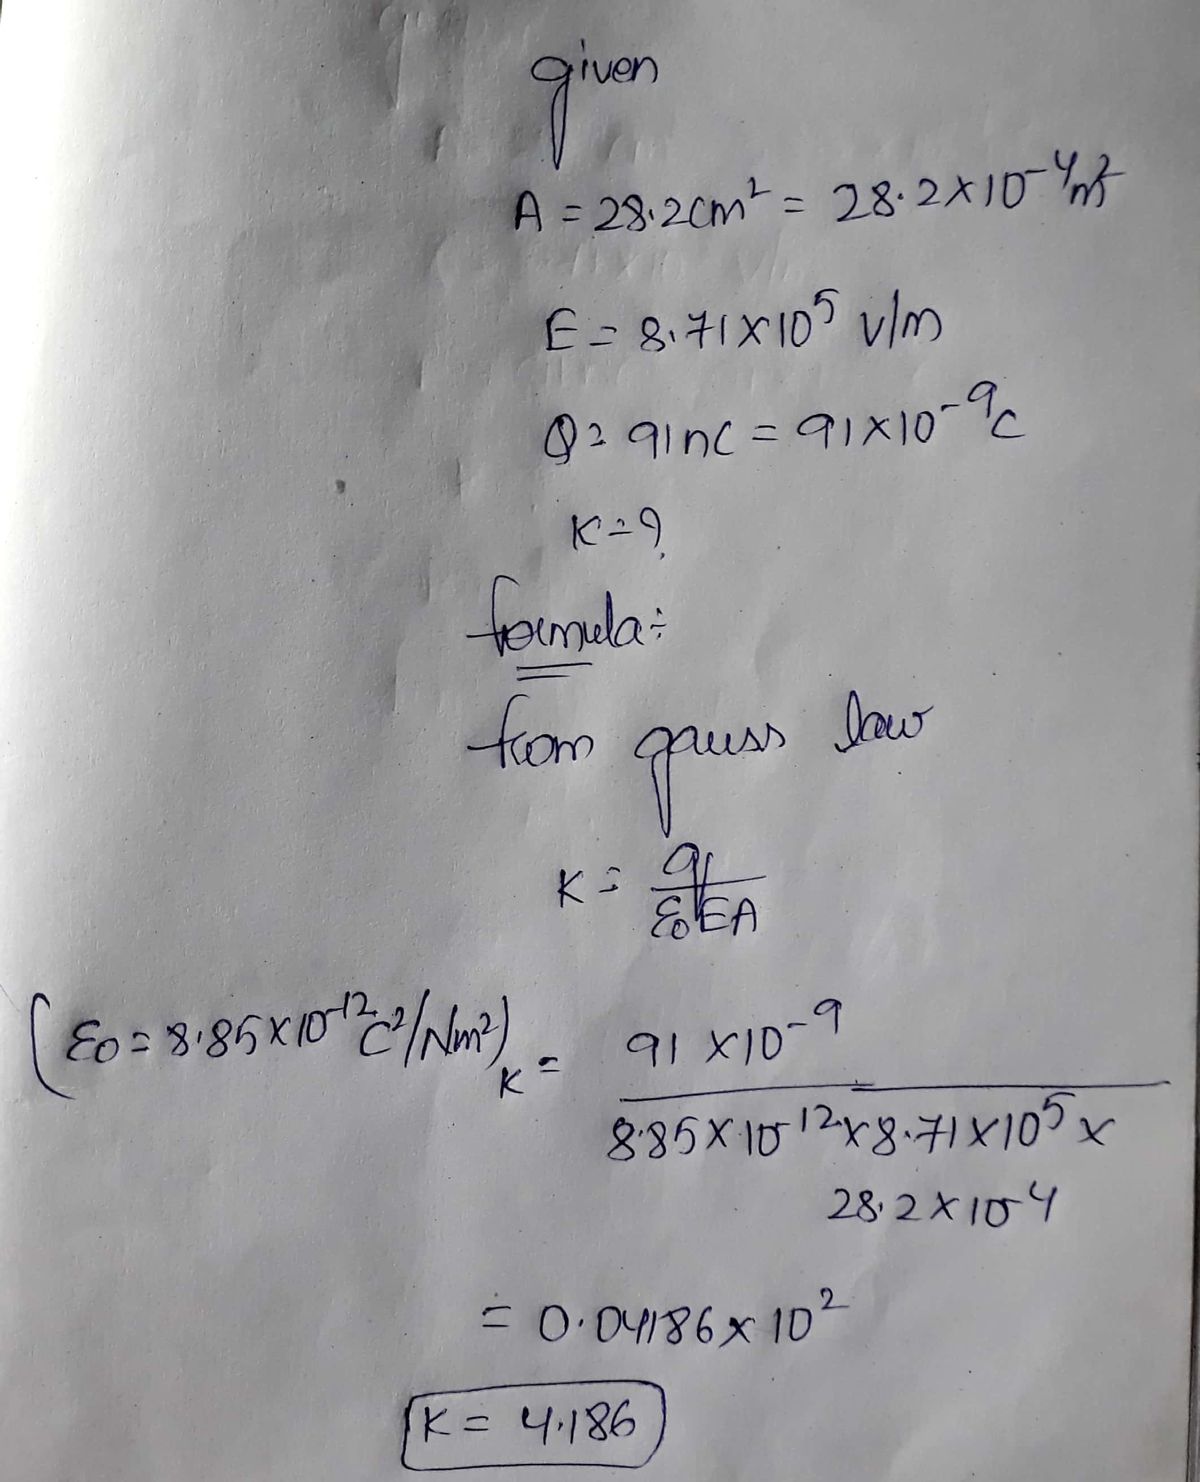 given
A = 28.2cm² = 28.2×10⁻⁴m²
E = 8.71×10⁵ v/m
Q = 91nC = 91×10⁻⁹C
K = ?
formula:
from gauss law
K = q/ε₀EA
(ε₀ = 8.85×10⁻¹²C²/Nm²) K = 91×10⁻⁹
8.85×10⁻¹²×8.71×10⁵×
28.2×10⁻⁴
= 0.04186×10²
K = 4.186